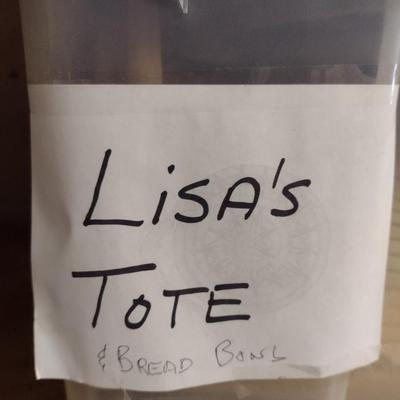 LiSA's
TOTE
& BREAD BOWL